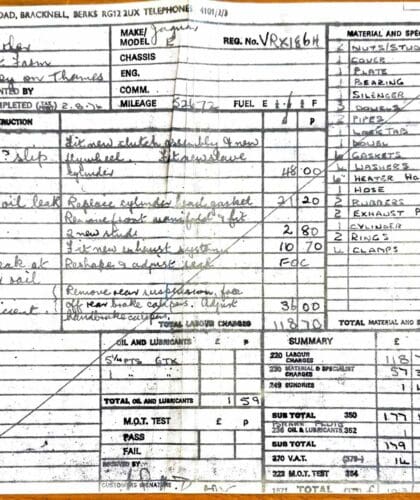 OAD, BRACKNELL, BERKS RG12 2UX TELEPHONE 4101/2/3
MAKE/ Jaguar
MODEL E
REG. No. VRX186H
MATERIAL AND SPE
CHASSIS
Farm
ENG.
ey on Thames
COMM.
MPLETED 2.8.7
MILEAGE 52672 FUEL E F
RUCTION
2 NUTS/STUD
1 COVER
1 PLATE
1 BEARING
1 SILENCER
3 DOWELS
2 PIPES
1 LOCK TAB
1 DOWEL
6 GASKETS
4 WASHERS
6 HEATER HO
1 HOSE
2 RUBBERS
2 EXHAUST P
1 CYLINDER
2 RINGS
4 CLAMPS
Fit new clutch assembly & new
? slip flywheel. Fit new slave
cylinder 48 00
oil leak Replace cylinder head gasket 21 20
Remove front manifold & fit
2 new studs 2 80
Fit new exhaust system 10 70
eak at Reshape & adjust FOC
rail
Remove rear suspension, free
off rear brake calipers. Adjust
handbrake calipers. 36 00
TOTAL LABOUR CHARGES 118 70
TOTAL MATERIAL AND S
OIL AND LUBRICANTS £ P
5 1/4 PTS GTX
1
TOTAL OIL AND LUBRICANTS 1 59
M.O.T. TEST £ P
PASS
FAIL
RECEIVED BY
CUSTOMERS SIGNATURE
SUMMARY £
220 LABOUR CHARGES 118 7
230 MATERIAL & SPECIALIST CHARGES 57 3
249 SUNDRIES 1
SUB TOTAL 350 177
236 OIL & LUBRICANTS 352 1
SUB TOTAL 179
370 V.A.T. 14
323 M.O.T. TEST 354